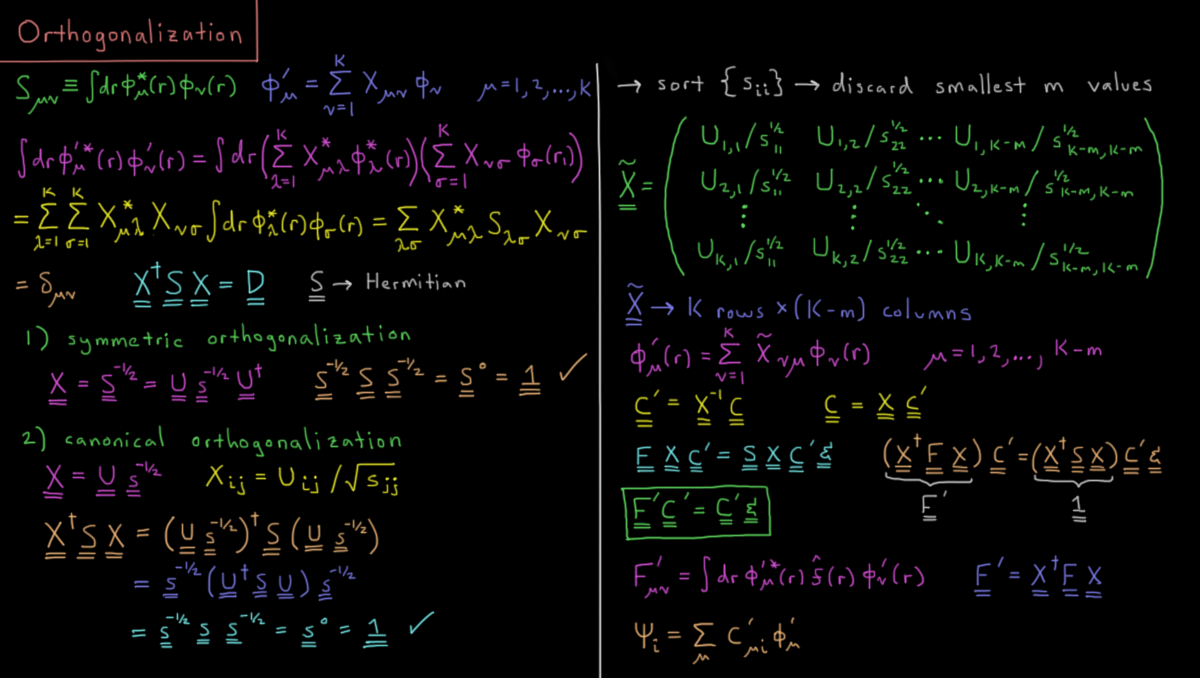 Orthogonalization
S_μν ≡ ∫dr ϕ_μ^*(r) ϕ_ν(r)   ϕ'_μ = Σ_{ν=1}^{K} X_μν ϕ_ν   μ=1,2,...,K
∫dr ϕ'_μ^*(r) ϕ'_ν(r) = ∫dr (Σ_{λ=1}^{K} X_μλ^* ϕ_λ^*(r)) (Σ_{σ=1}^{K} X_νσ ϕ_σ(r_1))
= Σ_{λ=1}^{K} Σ_{σ=1}^{K} X_μλ^* X_νσ ∫dr ϕ_λ^*(r) ϕ_σ(r) = Σ_{λσ} X_μλ^* S_λσ X_νσ
= δ_μν   X^† S X = D   S → Hermitian
1) symmetric orthogonalization
X = S^{-1/2} = U s^{-1/2} U^†   S^{-1/2} S S^{-1/2} = S^0 = 1 ✓
2) canonical orthogonalization
X = U s^{-1/2}   X_ij = U_ij / √s_jj
X^† S X = (U s^{-1/2})^† S (U s^{-1/2})
= s^{-1/2} (U^† S U) s^{-1/2}
= s^{-1/2} s s^{-1/2} = s^0 = 1 ✓
→ sort {s_ii} → discard smallest m values
X̃ = ( U_{1,1}/s_{11}^{1/2}   U_{1,2}/s_{22}^{1/2} ... U_{1,K-m}/s_{K-m,K-m}^{1/2}
U_{2,1}/s_{11}^{1/2}   U_{2,2}/s_{22}^{1/2} ... U_{2,K-m}/s_{K-m,K-m}^{1/2}
⋮   ⋮   ⋱   ⋮
U_{K,1}/s_{11}^{1/2}   U_{K,2}/s_{22}^{1/2} ... U_{K,K-m}/s_{K-m,K-m}^{1/2} )
X̃ → K rows × (K-m) columns
ϕ'_μ(r) = Σ_{ν=1}^{K} X̃_νμ ϕ_ν(r)   μ=1,2,..., K-m
C' = X^{-1} C   C = X C'
F X C' = S X C' ε   (X^† F X) C' = (X^† S X) C' ε
F'   1
F' C' = C' ε
F'_μν = ∫dr ϕ'_μ^*(r) f̂(r) ϕ'_ν(r)   F' = X^† F X
Ψ_i = Σ_μ C'_μi ϕ'_μ